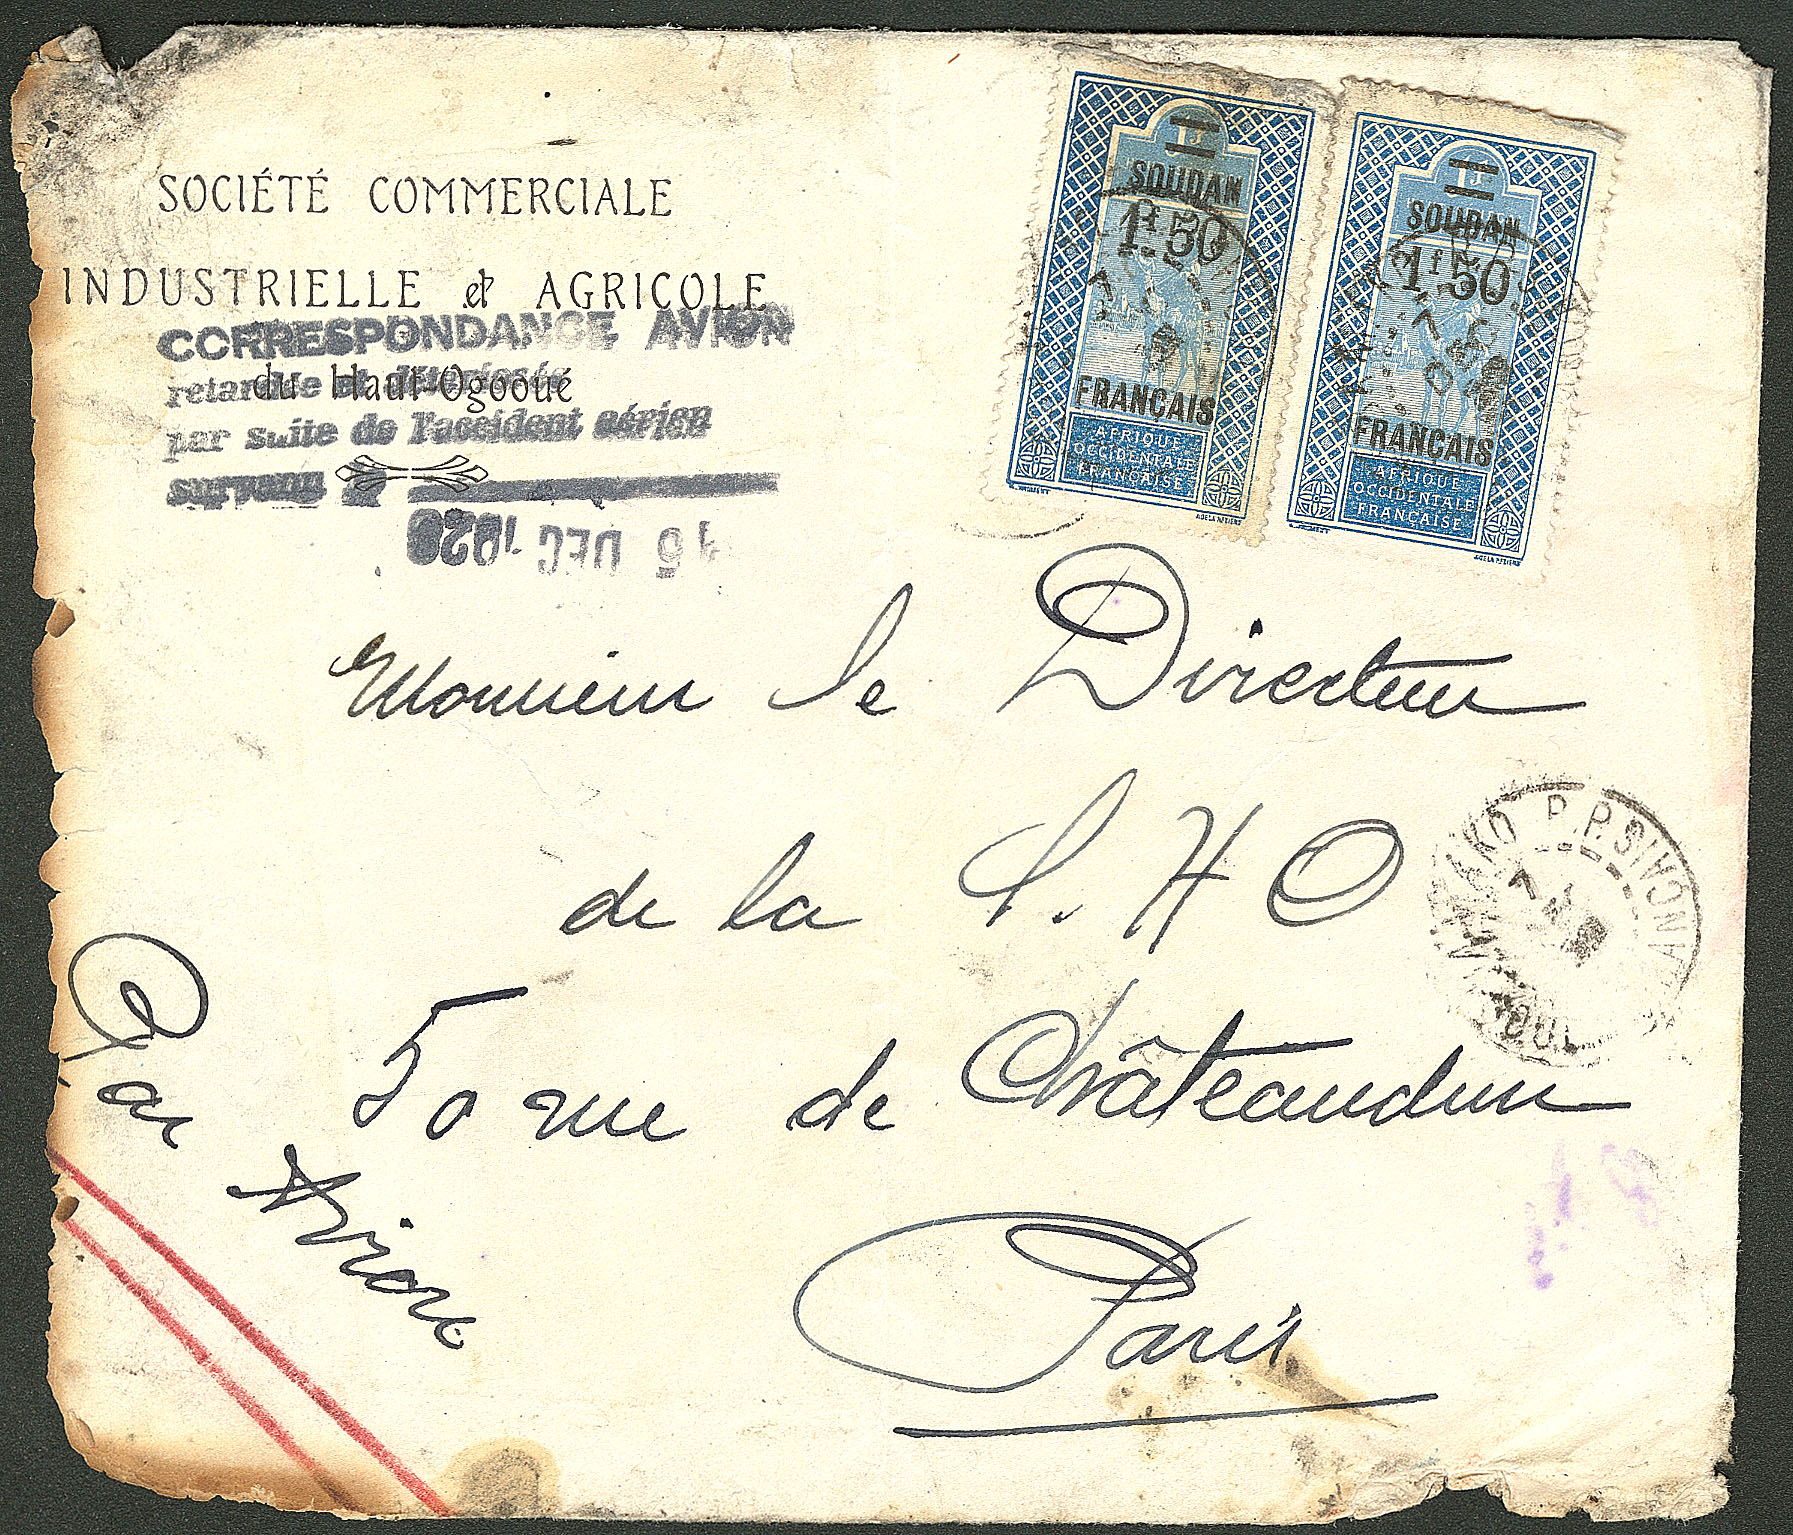 SOCIÉTÉ COMMERCIALE
INDUSTRIELLE et AGRICOLE
du Haut-Ogooué
CORRESPONDANCE AVION
retardée et détériorée
par suite de l'accident aérien
survenu le
16 DEC 1929
SOUDAN
1f.50
FRANÇAIS
AFRIQUE
OCCIDENTALE
FRANÇAISE
SOUDAN
1f.50
FRANÇAIS
AFRIQUE
OCCIDENTALE
FRANÇAISE
Monsieur le Directeur
de la S. H O
50 rue de Châteaudun
Paris
Par Avion
BAMAKO P.P.
SOUDAN FRANÇAIS